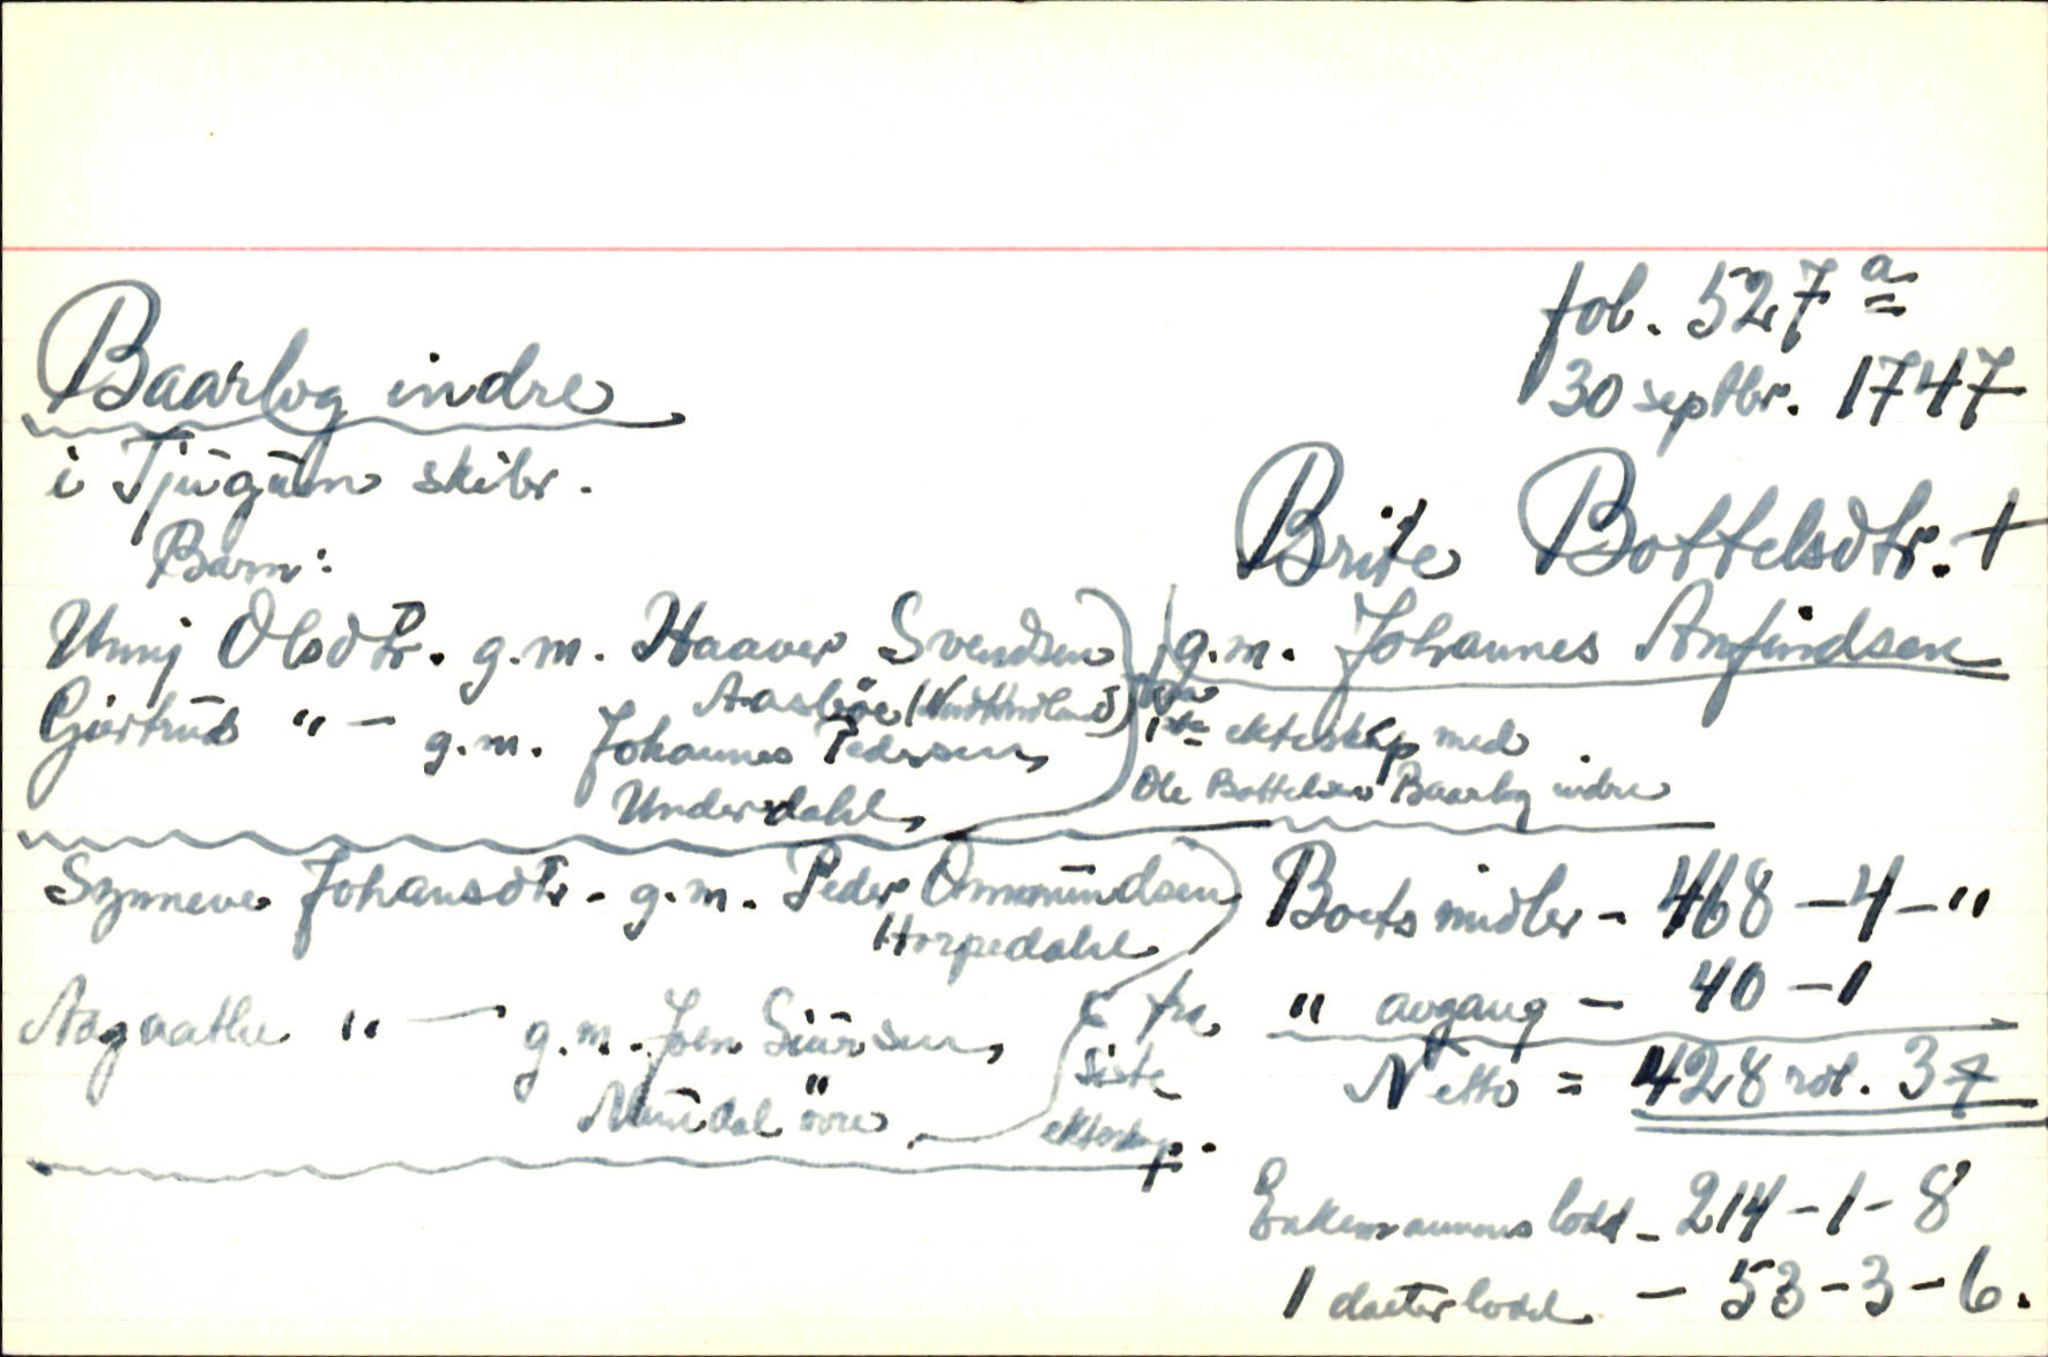 fol. 527 a
30 septbr. 1747
Baarlog indre
i Tjugum skibr.
Brite Bottelsdtr. +
g.m. Johannes Anfindsen
Barn:
Unnj Olsdtr. g.m. Haaver Svendsen
Aasbøe
Giertrud " — g.m. Johannes Pedersen,
Underdahl,
fra
1ste ekteskap med
Ole Bottelsen Baarlog indre
Synneve Johansdtr. g.m. Peder Ommundsen
Horpedahl
Aagaathe " — g.m. Joen Siursen,
Mundal øvre
fra
siste
ekteskap.
Boets midler - 468 - 4 - "
" avgang - 40 - 1
Netto = 428 rdl. 3 #
Enkemannens lodd - 214 - 1 - 8
1 datterlodd - 53 - 3 - 6.